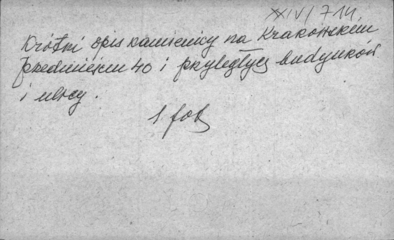 XXIV/714
Krótki opis kamienicy na Krakowskim
przedmieściu 40 i przyległych budynków
i ulicy.
1 fot